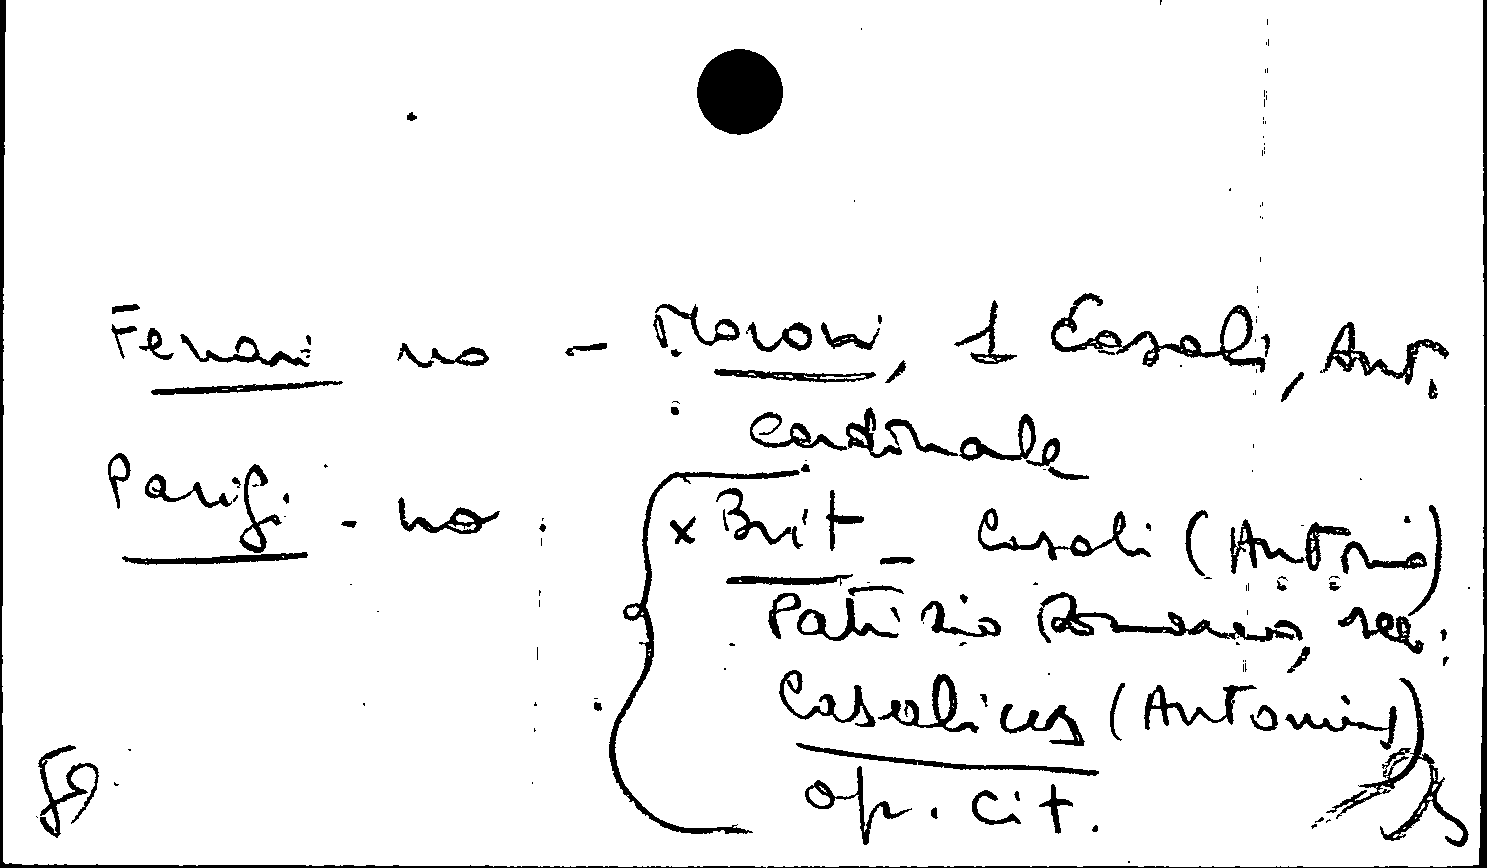 Ferrari no - Moroni, 1 Casali, Ant.
cardinale
Parigi - no
x Brit - Casali (Antonio)
Patrizio Romano, see:
Casalius (Antonius)
op. cit.